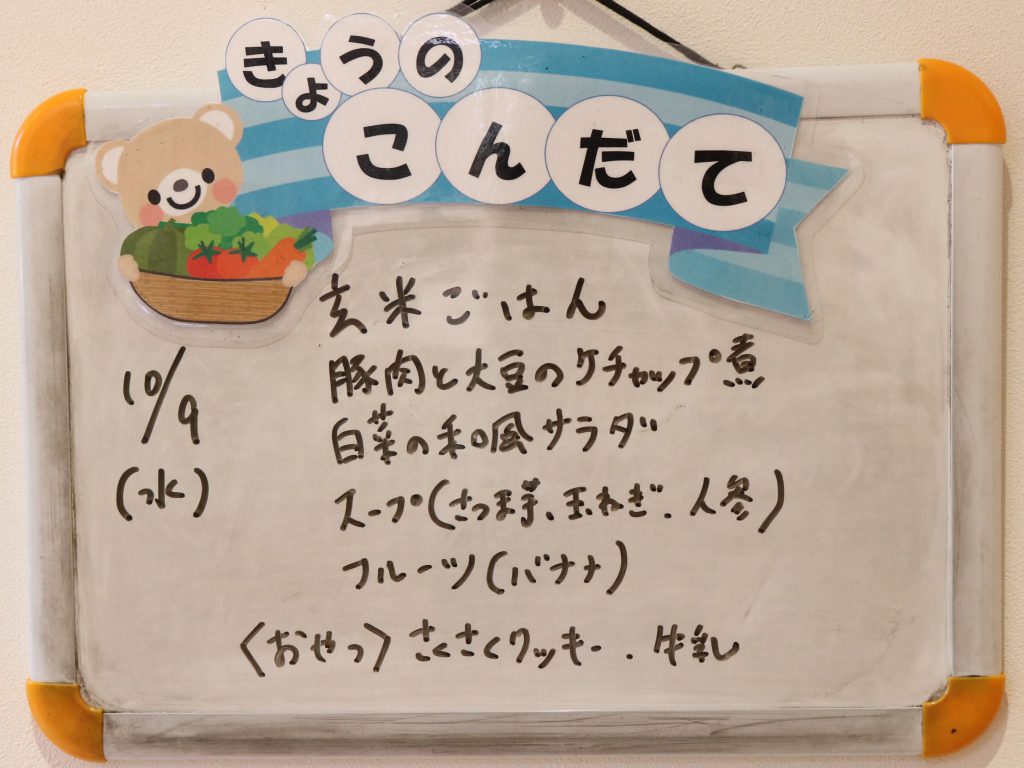 きょうの
こんだて
玄米ごはん
10/9
豚肉と大豆のケチャップ煮
白菜の和風サラダ
(水)
スープ(さつま芋、玉ねぎ、人参)
フルーツ(バナナ)
〈おやつ〉さくさくクッキー、牛乳